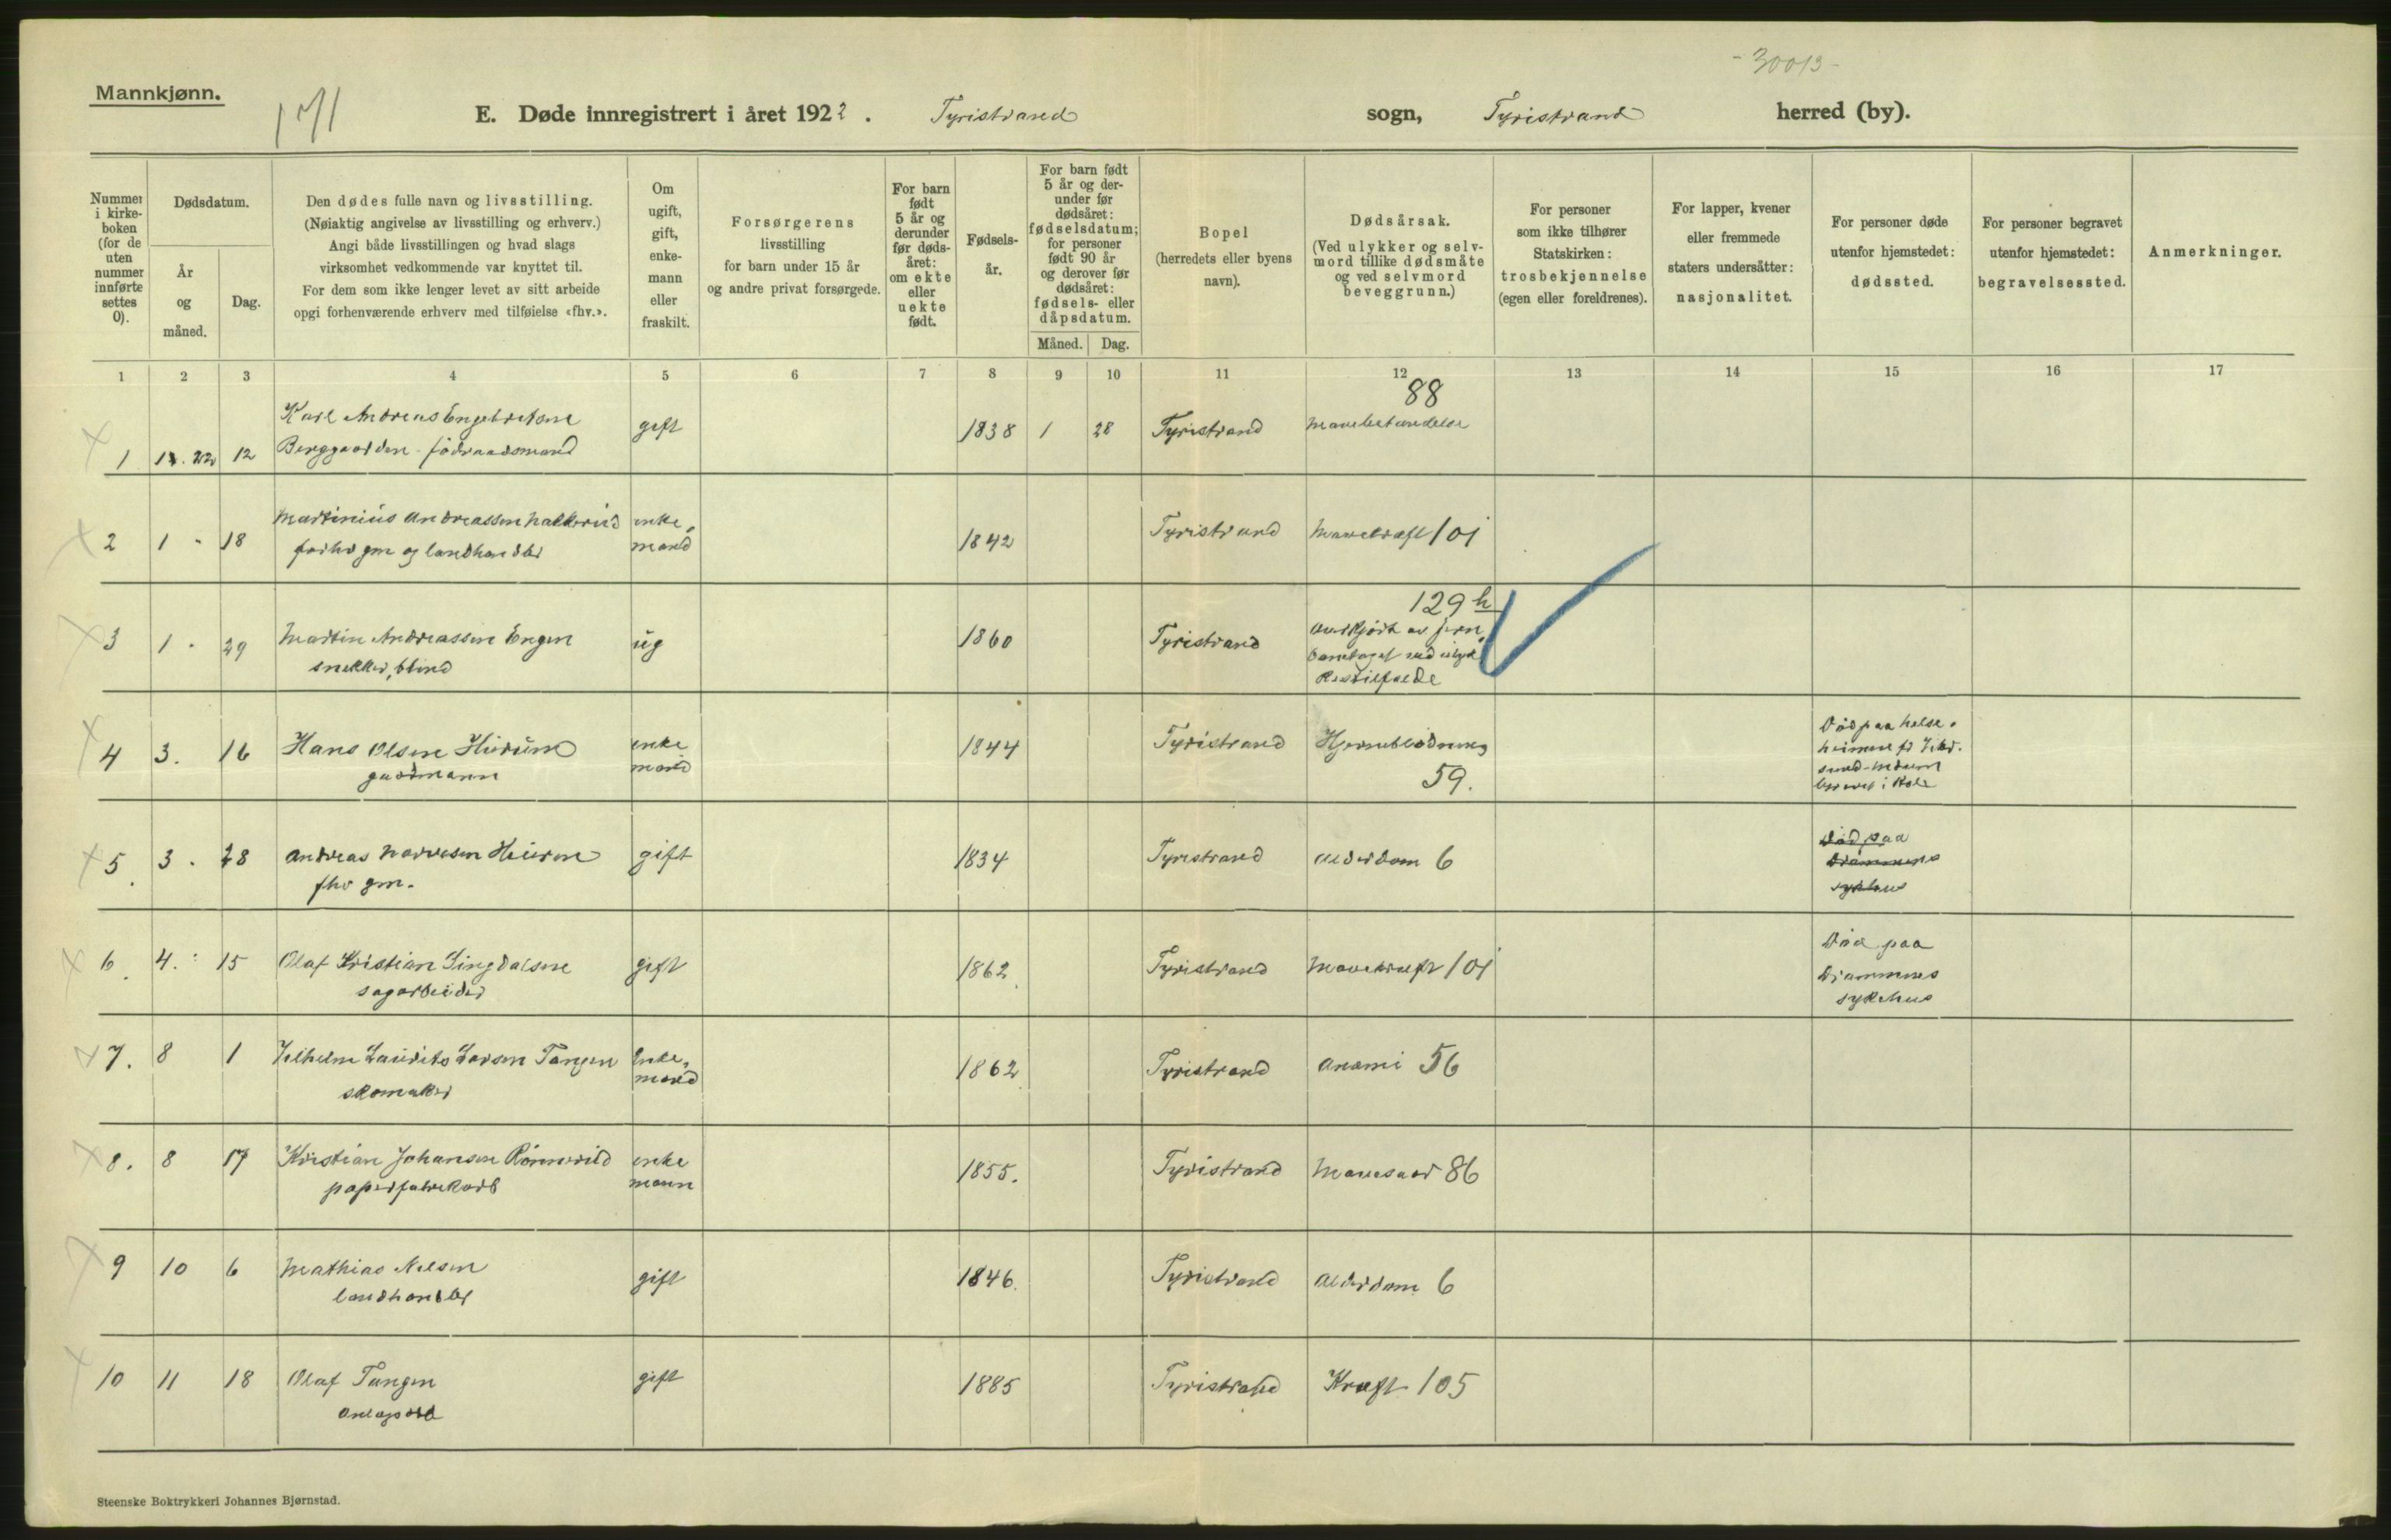 - 30013 -
Mannkjønn.
171
E. Døde innregistrert i året 1922. Tyristrand sogn, Tyristrand herred (by).
Nummer i kirke-boken (for de uten nummer innførte settes 0).
Dødsdatum.
År og måned.
Dag.
Den dødes fulle navn og livsstilling.
(Nøiaktig angivelse av livsstilling og erhverv.)
Angi både livsstillingen og hvad slags
virksomhet vedkommende var knyttet til.
For dem som ikke lenger levet av sitt arbeide
opgi forhenværende erhverv med tilføielse «fhv.».
Om ugift, gift, enke-mann eller fraskilt.
Forsørgerens
livsstilling
for barn under 15 år
og andre privat forsørgede.
For barn født 5 år og derunder før døds-året: om ekte eller uekte født.
Fødsels-år.
For barn født 5 år og der-under før dødsåret: fødselsdatum; for personer født 90 år og derover før dødsåret: fødsels- eller dåpsdatum.
Måned.
Dag.
Bopel
(herredets eller byens
navn).
Dødsårsak.
(Ved ulykker og selv-
mord tillike dødsmåte
og ved selvmord
beveggrunn.)
For personer
som ikke tilhører
Statskirken:
trosbekjennelse
(egen eller foreldrenes).
For lapper, kvener
eller fremmede
staters undersåtter:
nasjonalitet.
For personer døde
utenfor hjemstedet:
dødssted.
For personer begravet
utenfor hjemstedet:
begravelsessted.
Anmerkninger.
1 2 3 4 5 6 7 8 9 10 11 12 13 14 15 16 17
88
1 22 12 Karl Andreas Engebretsen gift 1838 1 28 Tyristrand Mavebetændelse
Berggaarden føderaadsmand
2 1 - 18 Martinius Andreassen enke- 1842 Tyristrand Mavekræft 101
forhv gm og landhandler mand
129 h
3 1 - 29 Martin Andreassen Engen ug 1860 Tyristrand Overkjørt av jern
snekker, blind banetoget ved ulyk
kestilfælde
4 3. 16 Hans Olsen Hurum enke 1844 Tyristrand Hjerneblødning Død paa helse-
gaardmann mand 59. heimen
5. 3 - 28 Andreas Heieren gift 1834 Tyristrand Alderdom 6 Død paa
fhv gm. Drammens
sykehus
6. 4. 15 Olaf Kristian Lingdalsen gift 1862 Tyristrand Mavekræft 101 Død paa
sagarbeider Drammens
sykehus
7. 8 1 Vilhelm Laurits Larsen Tangen Enke- 1862 Tyristrand Anæmi 56
skomaker mand
8. 8 17 Kristian Johansen Rønnerud enke 1855. Tyristrand Mavesaar 86
papirfabrikarb mann
9 10 6 Mathias Nilsen gift 1846. Tyristrand Alderdom 6
landhandler
10 11 18 Olaf Tangen gift 1885 Tyristrand Kræft 105
anlægsarb
Steenske Boktrykkeri Johannes Bjørnstad.